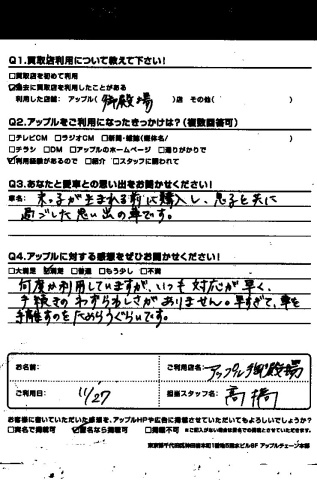 Q1.買取店利用について教えて下さい!
□買取店を初めて利用
☑過去に買取店を利用したことがある
利用した店舗: アップル( 御殿場 )店 その他( )
Q2.アップルをご利用になったきっかけは?(複数回答可)
□テレビCM □ラジオCM □新聞・雑誌(媒体名/ )
□チラシ □DM □アップルのホームページ □通りがかりで
☑利用経験があるので □紹介 □スタッフに誘われて
Q3.あなたと愛車との思い出をお聞かせください!
車名: 末っ子が生まれる前に購入し、息子と共に
過ごした思い出の車です。
Q4.アップルに対する感想をぜひお聞かせください!
□大満足 ☑満足 □普通 □もう少し □不満
何度か利用していますが、いつも対応が早く、
手続きのわずらわしさがありません。早すぎて、車を
手離すのをためらうぐらいです。
お名前:
ご利用店名: アップル御殿場
ご利用日: 11/27
担当スタッフ名: 高橋
お客様に書いていただいた感想を、アップルHPや広告に掲載させていただいてもよろしいでしょうか?
□実名で掲載可 ☑匿名なら掲載可 □掲載不可 ※ご記入がない場合は匿名での掲載とさせていただきます。